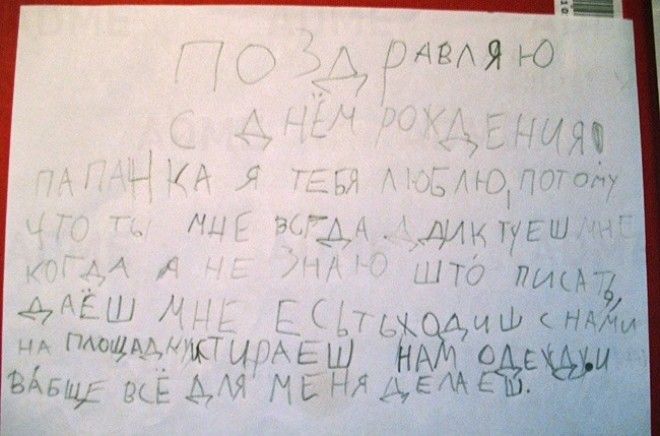 ПОЗДРАВЛЯЮ
С ДНЁМ РОЖДЕНИЯ
ПАПАНКА Я ТЕБЯ ЛЮБЛЮ, ПОТОМУ
ЧТО ТЫ МНЕ ВСГДА ДИКТУЕШ МНЕ
КОГДА Я НЕ ЗНАЮ ШТО ПИСАТЬ,
ДАЁШ МНЕ ЕСЬТЬ ХОДИШ С НАМИ
НА ПЛОЩАДКУ СТИРАЕШ НАМ ОДЕЖДУ. И
ВАБЩЕ ВСЁ ДЛЯ МЕНЯ ДЕЛАЕШ.